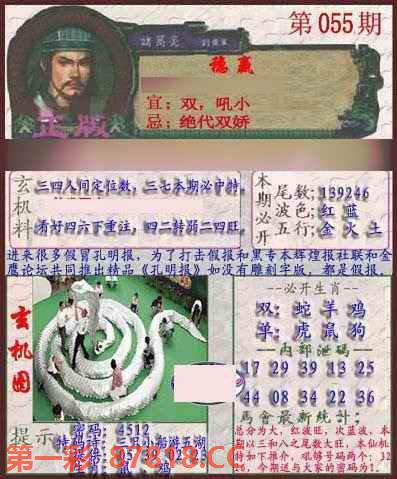 第055期
諸葛亮
穩贏
宜：双，吼小
忌：绝代双娇
正版
玄机料
三四人间定位数，三七本期必中特。
看好四六下重注，四二转弱二四旺。
本期必开
尾数：139246
波色：红 蓝
五行：金 火 土
进来很多假冒孔明报，为了打击假报和黑专本辉煌报社联和金
鹰论坛共同推出精品《孔明报》如没有雕刻字版，都是假报。
玄机图
必开生肖
双：蛇 羊 鸡
单：虎 鼠 狗
内部泄码
17 29 39 13 25
44 08 34 22 36
馬會最新統計：
总分为大，红波旺，次蓝波，本
期以三和八之尾数大旺，本仙机
特如下推介，吼够号码两个：32
26，今期送与大家的密码为！
提示
密码：4512
特码诗：三只小船游五湖
第一彩 87818.CC